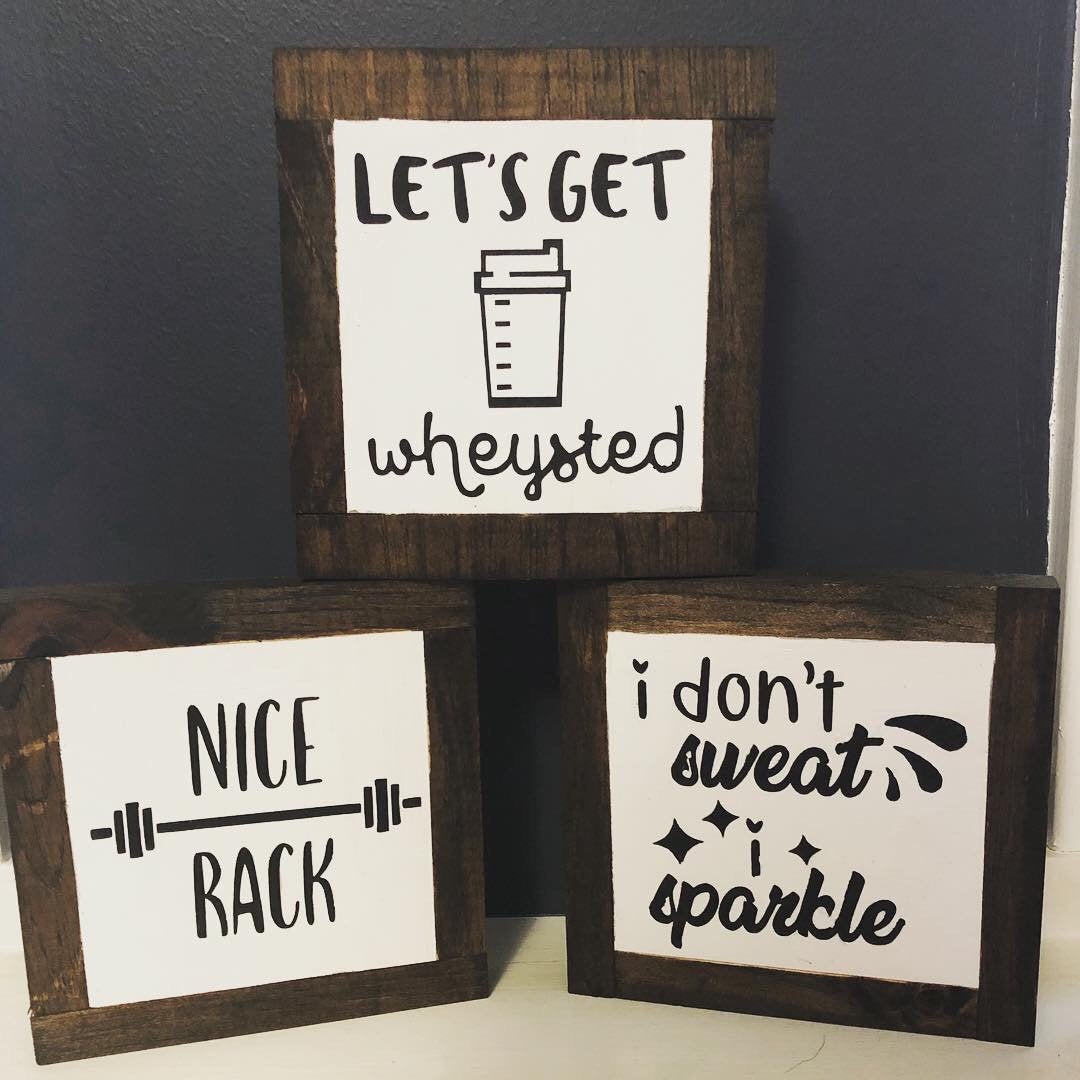 LET'S GET
wheysted
NICE
RACK
i don't
sweat
i
sparkle